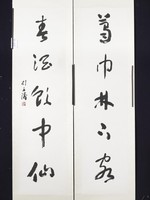 葛巾林下客
春酒飲中仙